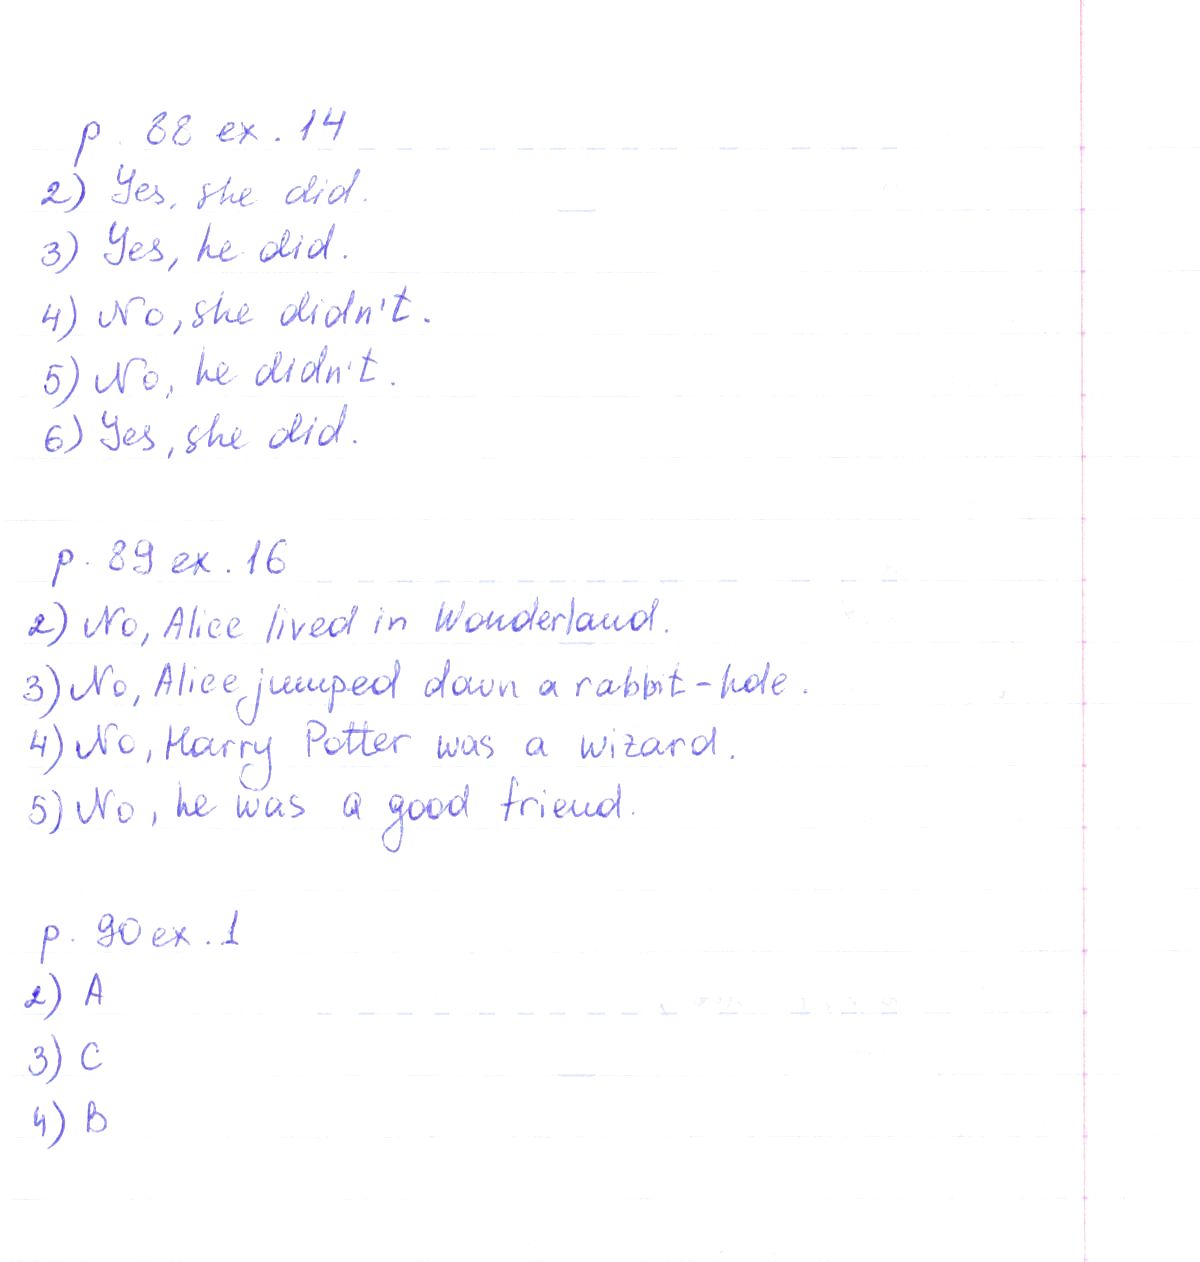 p. 88 ex. 14
2) Yes, she did.
3) Yes, he did.
4) No, she didn't.
5) No, he didn't.
6) Yes, she did.
p. 89 ex. 16
2) No, Alice lived in Wonderland.
3) No, Alice jumped down a rabbit-hole.
4) No, Harry Potter was a wizard.
5) No, he was a good friend.
p. 90 ex. 1
2) A
3) C
4) B